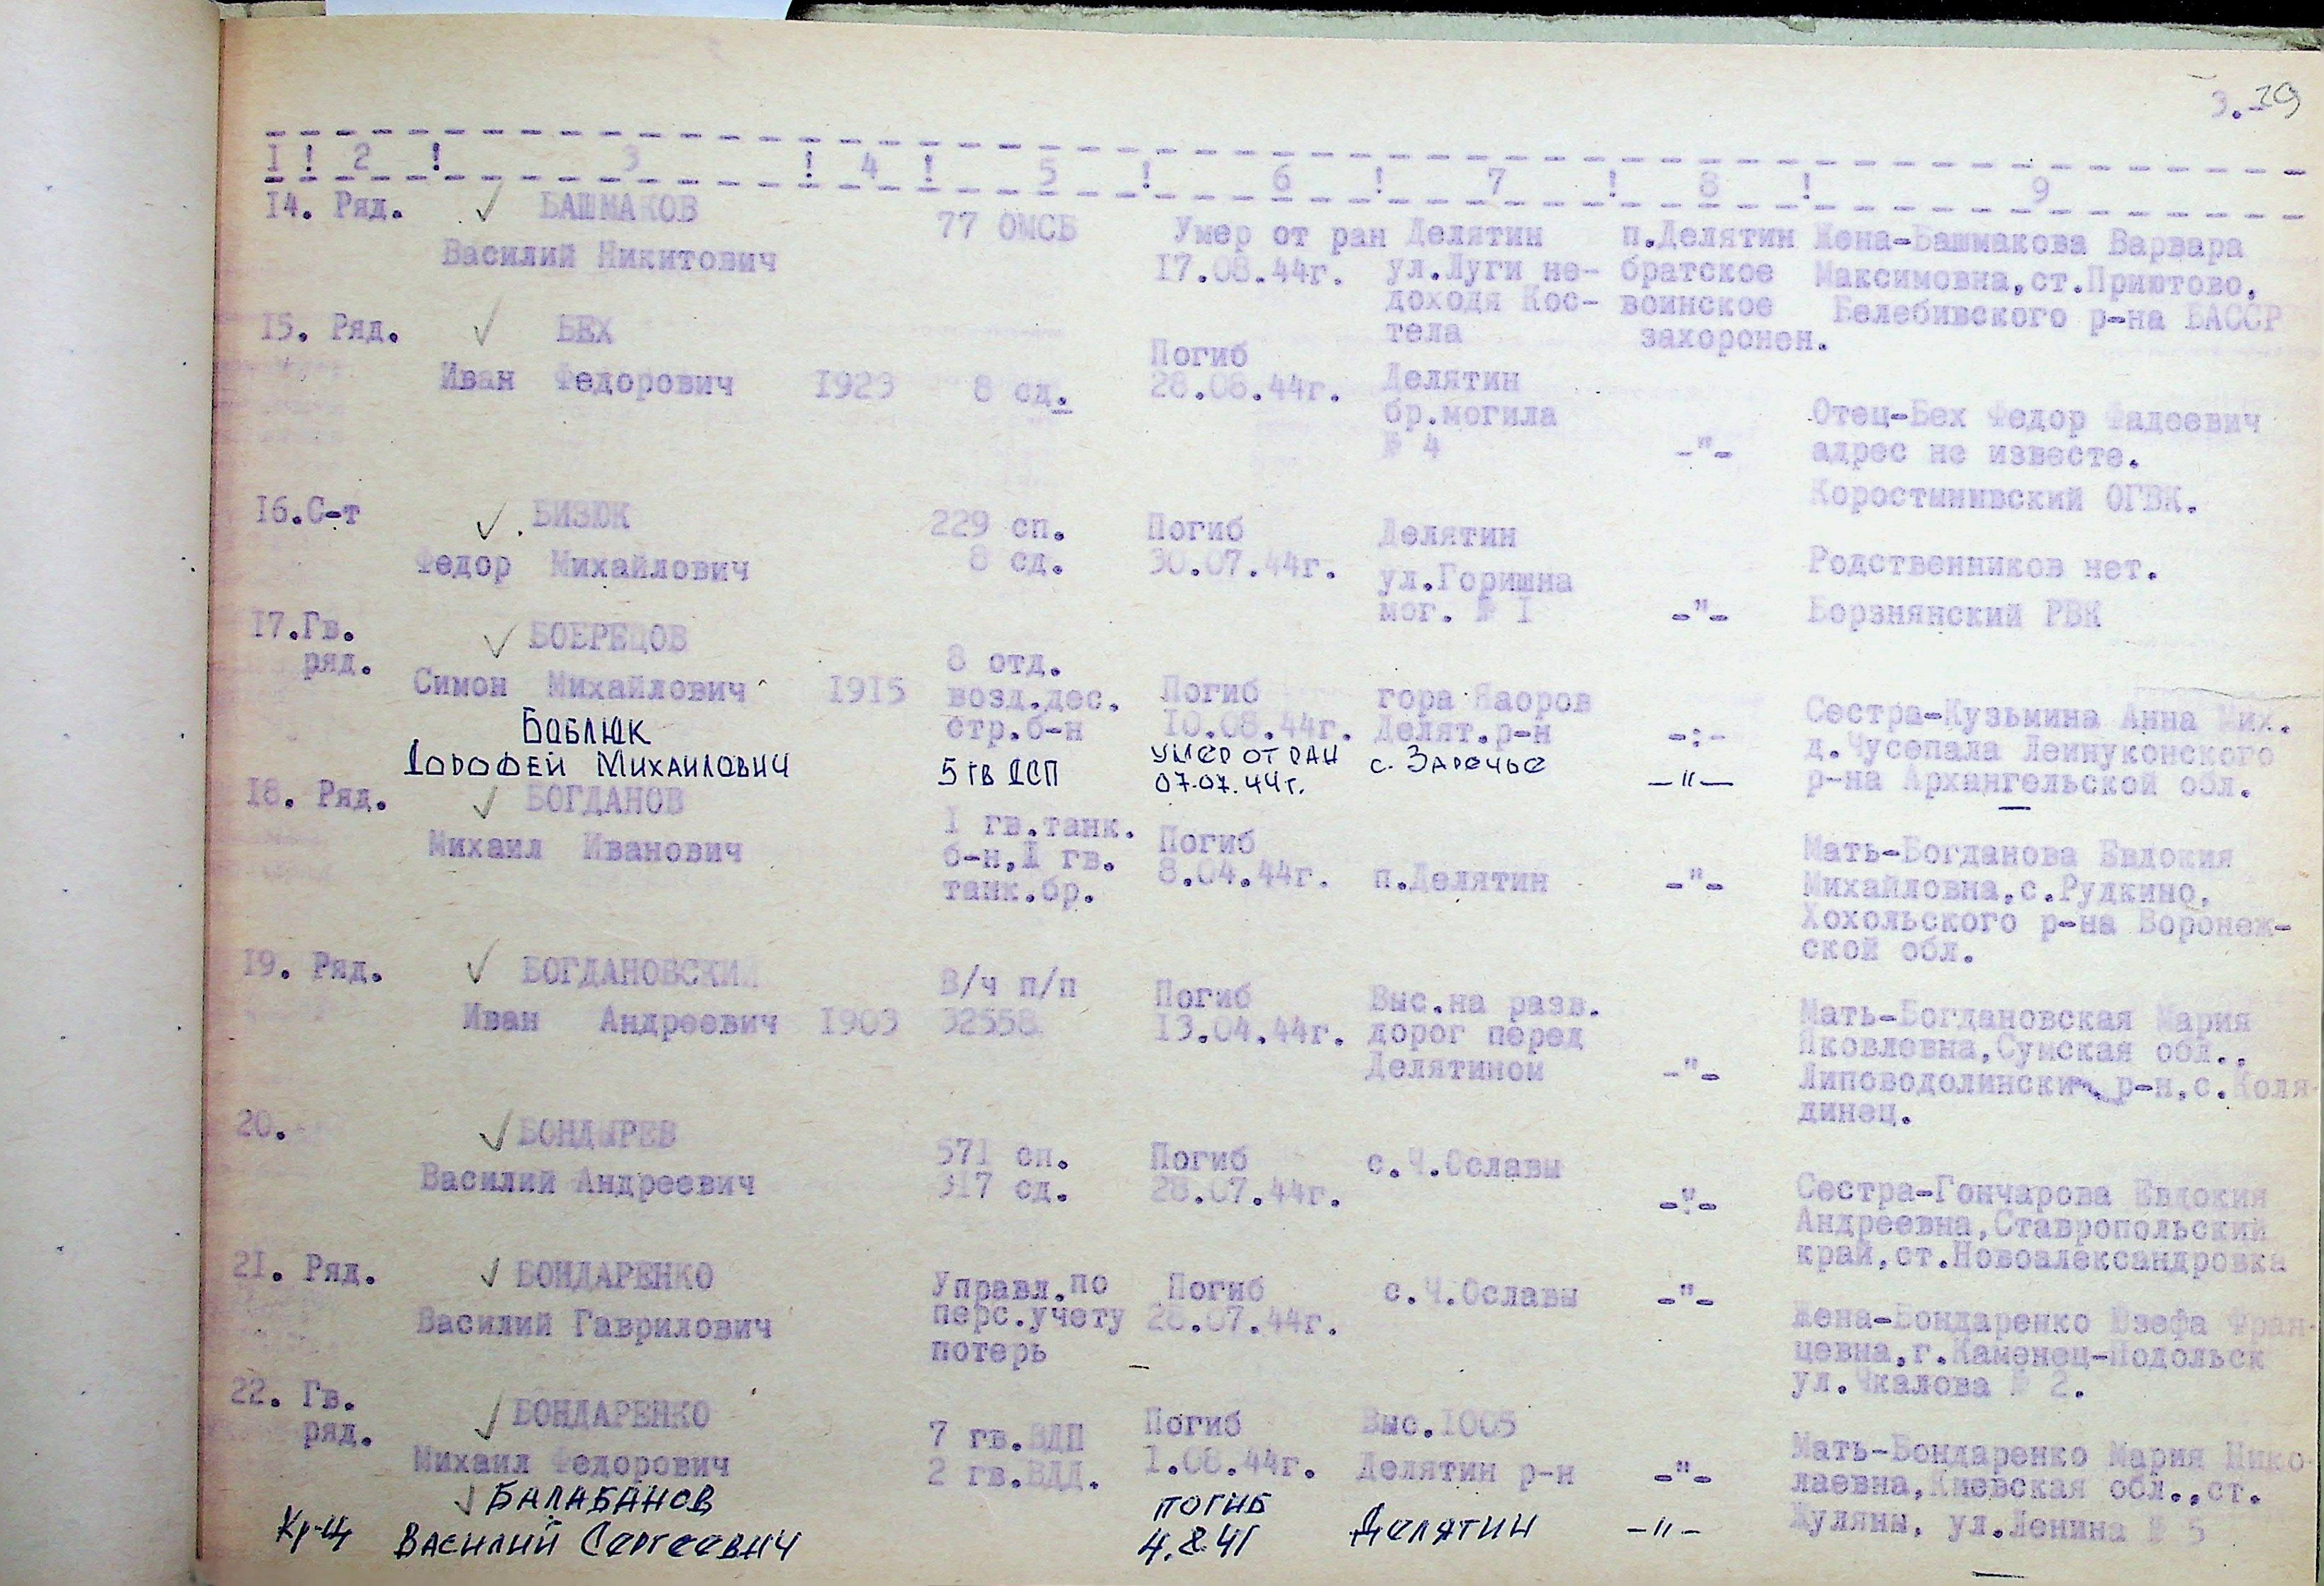 3. 19
I ! 2 ! 3 ! 4 ! 5 ! 6 ! 7 ! 8 ! 9
14. Ряд. БАШМАКОВ
Василий Никитович
77 ОМСБ
Умер от ран
17.08.44г.
Делятин
ул.Луги не-
доходя Кос-
тела
п.Делятин
братское
воинское
захоронен.
Жена-Башмакова Варвара
Максимовна,ст.Приютово,
Белебивского р-на БАССР
15. Ряд. БЕХ
Иван Федорович 1923 8 сд.
Погиб
28.08.44г.
Делятин
бр.могила
№ 4
-"-
Отец-Бех Федор Фадеевич
адрес не известе.
Коростынивский ОГВК.
16.С-т БИЗЮК
Федор Михайлович
229 сп.
8 сд.
Погиб
30.07.44г.
Делятин
ул.Горишна
мог. № I
-"-
Родственников нет.
Борзнянский РВК
17.Гв.
ряд.
БОБРЕЦОВ
Симон Михайлович 1915
8 отд.
возд.дес.
стр.б-н
Погиб
10.08.44г.
гора Яаоров
Делят.р-н
-:-
Сестра-Кузьмина Анна Мих.
д.Чусепала Лейнуконского
р-на Архангельской обл.
Боблюк
Дорофей Михайлович
5 гв ДСП
умер от ран
07.07.44г.
с. Заречье
-"-
18. Ряд. БОГДАНОВ
Михаил Иванович
I гв.танк.
б-н,I гв.
танк.бр.
Погиб
8.04.44г.
п.Делятин
-"-
Мать-Богданова Евдокия
Михайловна,с.Рудкино,
Хохольского р-на Воронеж-
ской обл.
19. Ряд. БОГДАНОВСКИЙ
Иван Андреевич 1903
В/ч п/п
32558
Погиб
13.04.44г.
Выс.на разв.
дорог перед
Делятином
-"-
Мать-Богдановская Мария
Яковлевна,Сумская обл.,
Липоводолински р-н,с.Коля-
динец.
20. БОНДЫРЕВ
Василий Андреевич
571 сп.
317 сд.
Погиб
28.07.44г.
с.Ч.Ославы
-"-
Сестра-Гончарова Евдокия
Андреевна,Ставропольский
край,ст.Новоалександровка
21. Ряд. БОНДАРЕНКО
Василий Гаврилович
Управл.по
перс.учету
потерь
Погиб
28.07.44г.
с.Ч.Ославы
-"-
Жена-Бондаренко Юзефа Фран-
цевна,г.Каменец-Подольск
ул.Чкалова № 2.
22. Гв.
ряд.
БОНДАРЕНКО
Михаил Федорович
7 гв.ВДП
2 гв.ВДД.
Погиб
1.08.44г.
Выс.1005
Делятин р-н
-"-
Мать-Бондаренко Мария Нико-
лаевна,Киевская обл.,ст.
Жуляны, ул.Ленина № 5
Кр-ц
Балабанов
Василий Сергеевич
погиб
4.8.41
Делятин
-"-